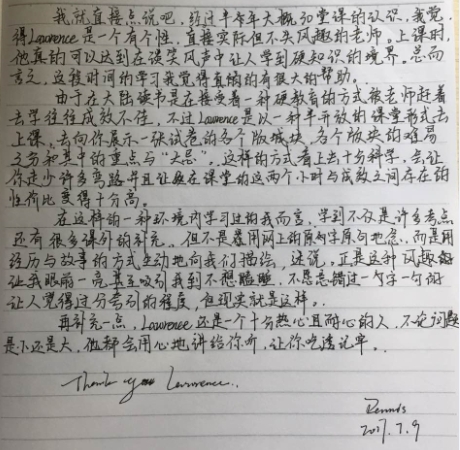 我就直接点说吧，经过半年大概30堂课的认识，我觉
得Lawrence是一个有个性，直接实际但不失风趣的老师。上课时，
他真的可以达到在谈笑风声中让人学到硬知识的境界。总而
言之，这段时间的学习我觉得真的有很大的帮助。
由于在大陆读书是在接受着一种硬教育的方式被老师赶着
去学往往成效不佳，不过Lawrence是以一种半开放的课堂形式去
上课，去向你展示一张试卷的各个版块，各个版块的难易
之分和其中的重点与“大忌”。这样的方式看上去十分科学，会让
你走少许多弯路并且让在课堂的这两个小时与成效之间存在的
性价比变得十分高。
在这样的一种环境内学习过的我而言，学到不仅是许多考点
还有很多课外的补充，但不是用网上的原句地念，而是用
经历与故事的方式生动地向我们描绘，述说，正是这种风趣
让我眼前一亮甚至吸引我到不想瞌睡，不愿意错过一句字一句
让人觉得过分夸张的程度，但现实就是这样。
再补充一点，Lawrence还是一个十分热心且耐心的人，不论问题
是小还是大，他都会用心地讲给你听，让你吃透记牢。
Thank you Lawrence.
Dennis
2017.7.9